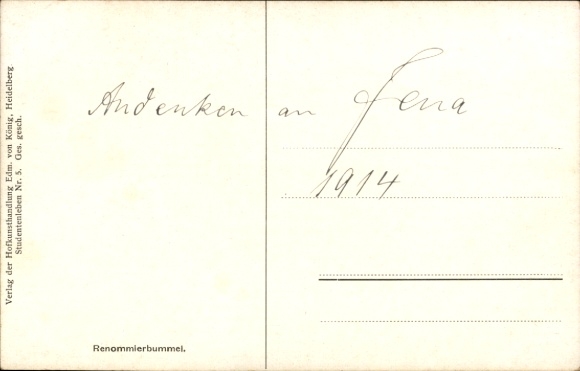 Andenken an Jena
1914
Verlag der Hofkunsthandlung Edm. von König, Heidelberg
Studentenleben Nr. 5. Ges. gesch.
Renommierbummel.